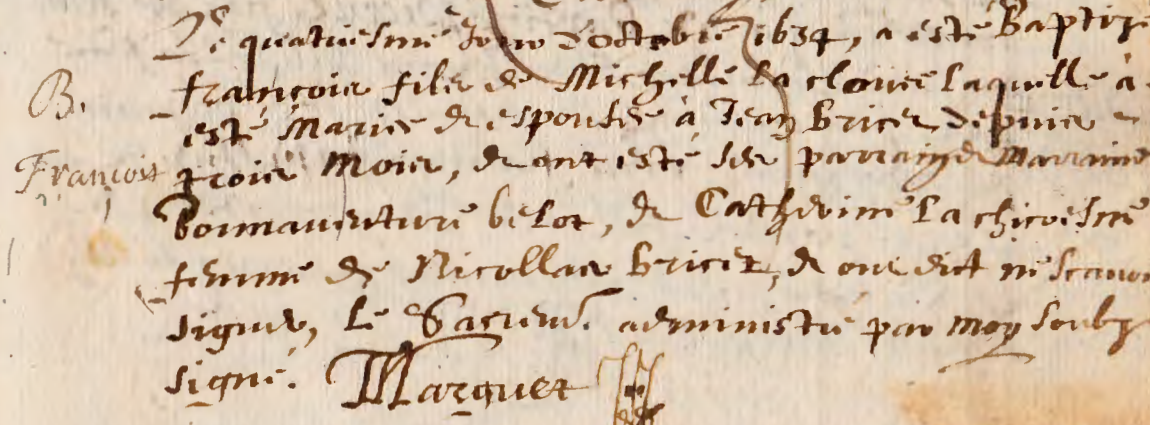 Le quatriesme Jour d'octobre 1634, a esté Baptizé
B. françois filz de Michelle La clouee laquelle à
esté Mariee & espousée à Jean Bricet depuis
François trois Mois, & ont esté ses parrain & Marraine
Bonnauenture belot, & Catherine La chicoesme
femme de Nicollas Bricet, & ont dict ne scauoir
signer, Le Sacremt. administré par moy soub
signé. Marquet